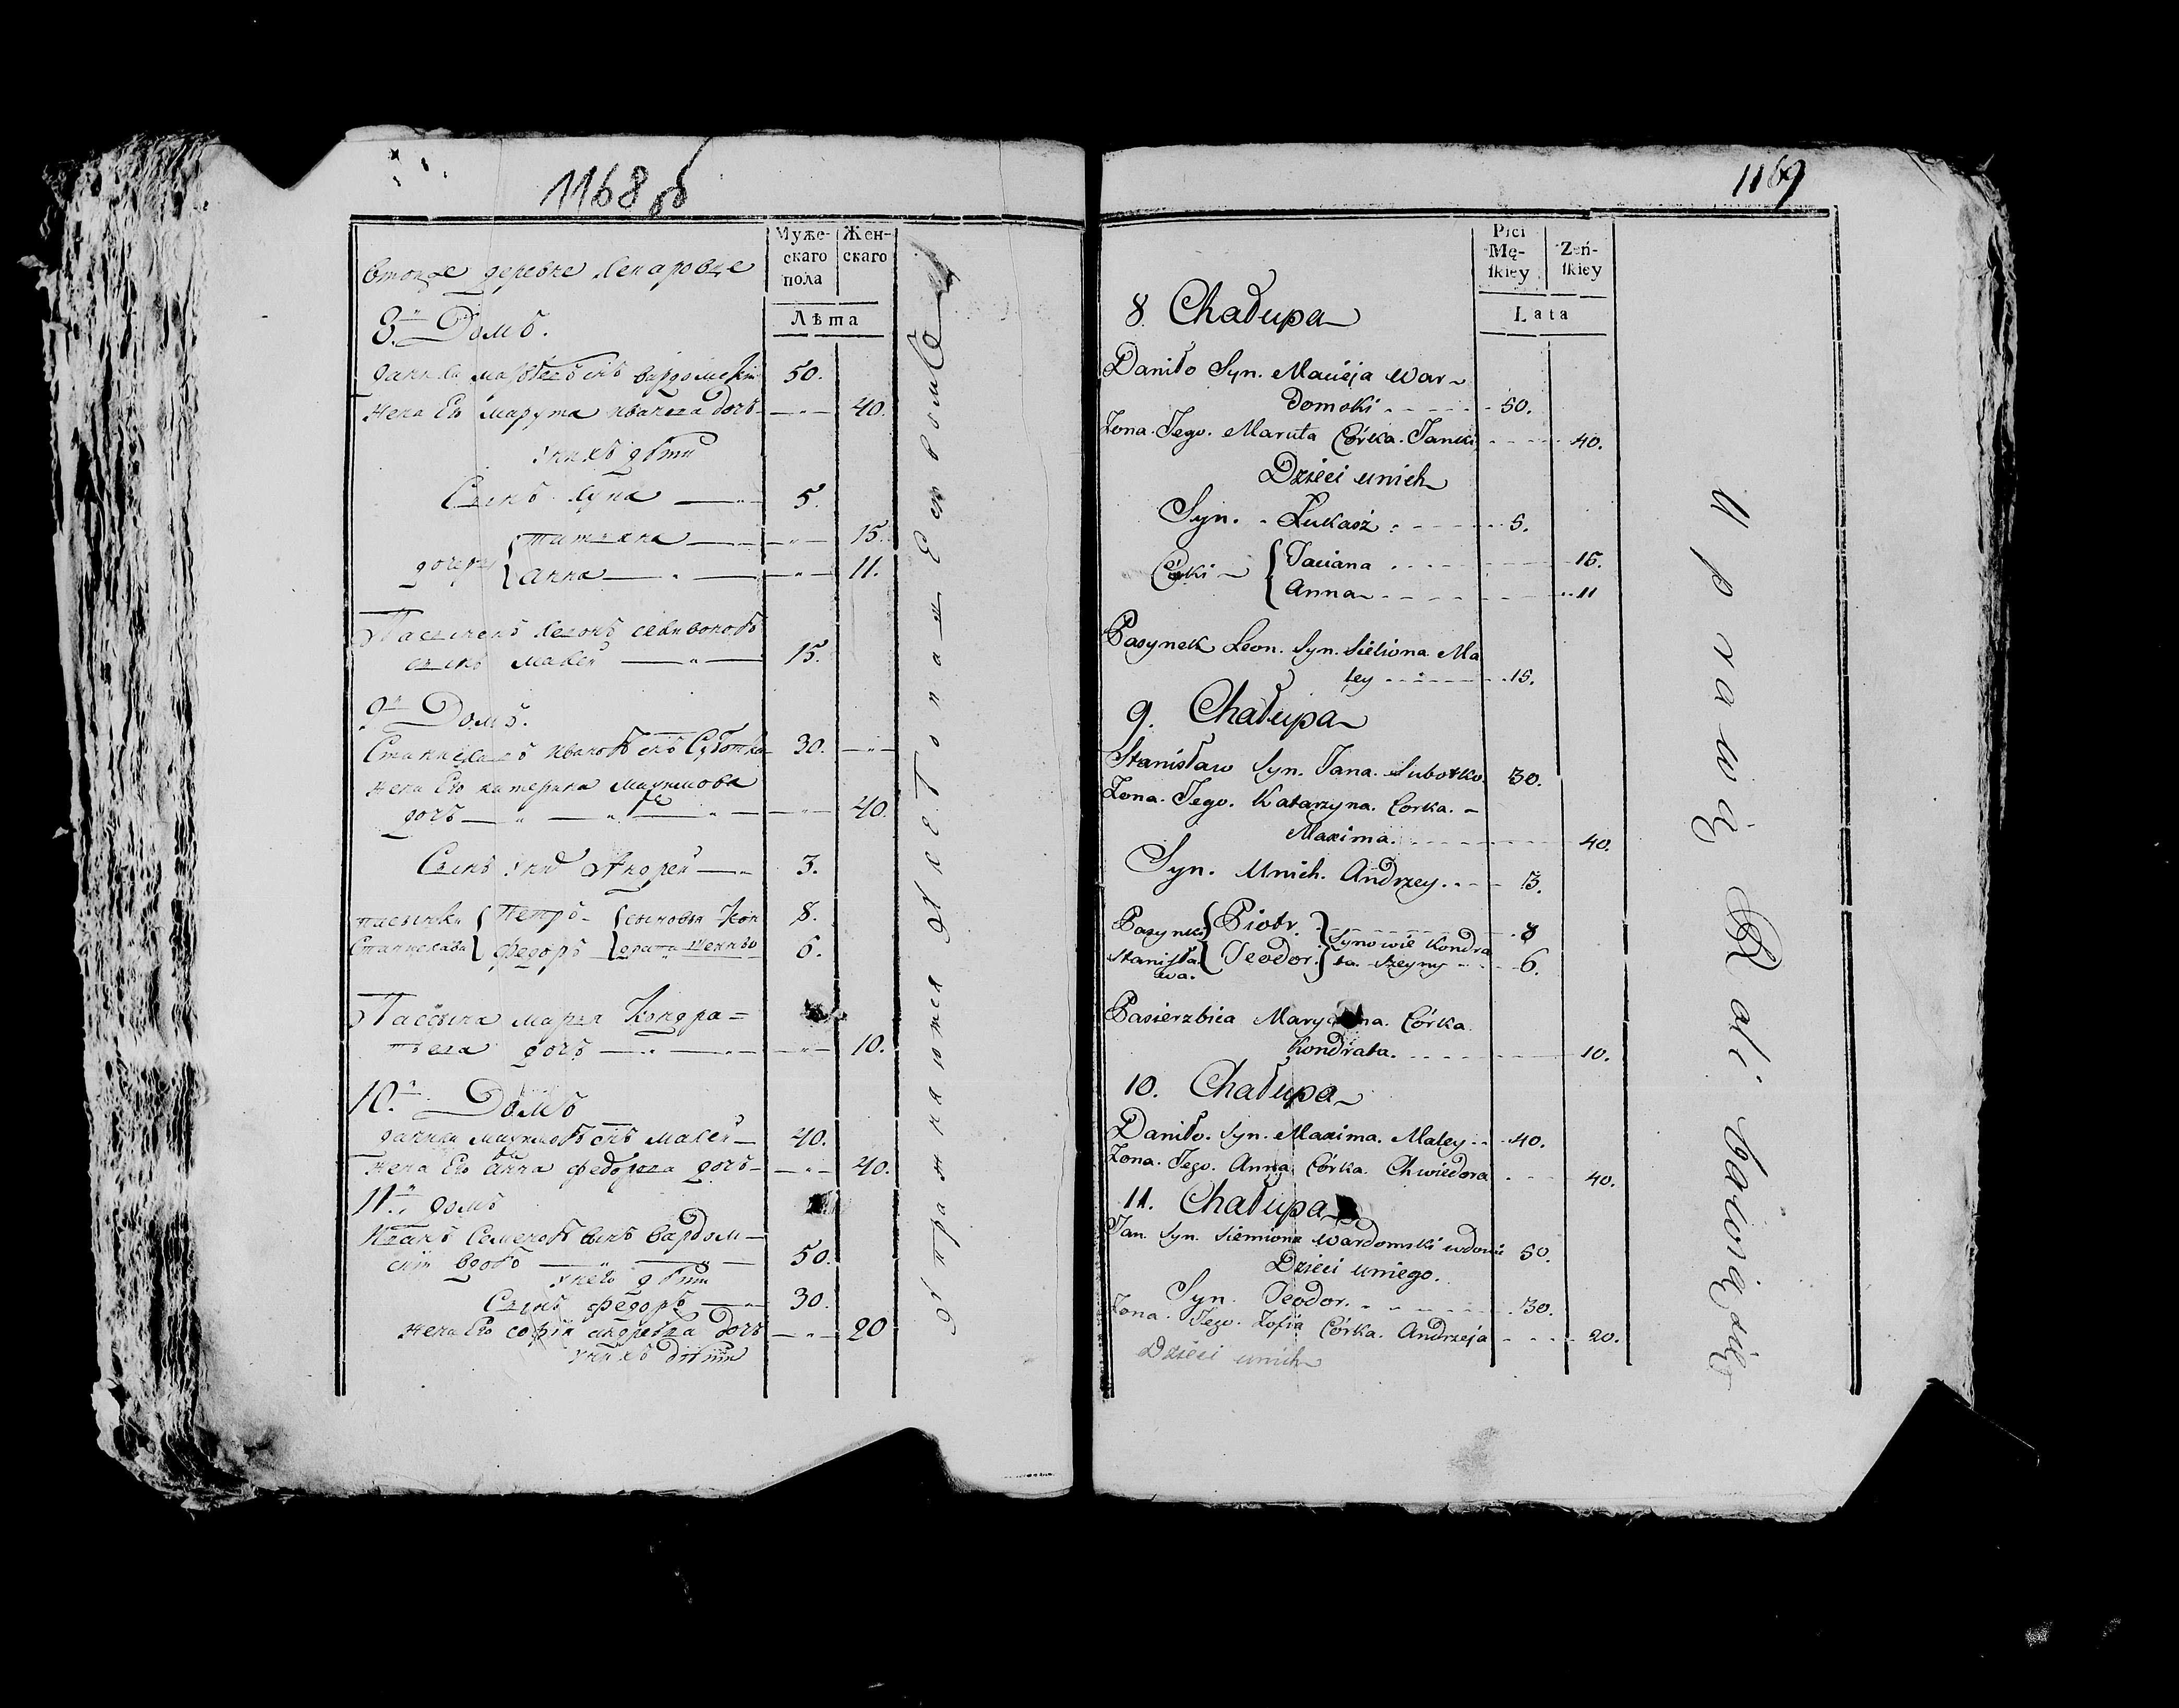 1168 об
Муже-
скаго
пола
Жен-
скаго
Лѣта
деревне
8.й Домъ.
50.
жена Его Марута Иванова дочь — 40.
у нихъ дѣти
Сынъ Лука — 5.
дочери { Татьяна — 15.
Анна — 11.
Пасынокъ
сынъ Малей — 15.
9.й Домъ.
Станиславъ Ивановъ снъ Суботка 30.
жена Его катерина Мацимова
дочь — 40.
Сынъ у них Андрей — 3.
пасынки { Петръ { сыновья Кон 8.
Станислава { Федоръ 6.
Пасерица Марья Кондра=
това дочь — 10.
10.й Домъ
Данила Мацимовъ снъ Малей — 40.
жена Его Анна Федорова дочь — 40.
11.й домъ
Иванъ Семеновъ сынъ Вардом—
скій вдовъ — 50.
у него дѣти
Сынъ Федоръ — 30.
жена Его софія андреева дочь — 20
у нихъ дѣти
1169
Płci
Mę-
skiey
Żeń-
skiey
Lata
8. Chałupa
Daniło Syn. Macieja War-
domski - - - - 50.
Zona. Jego. Maruta Córka. Janki - - - 40.
Dzieci unich
Syn. - Łukasz - - - - 5.
Córki - { Taciana - - - - 15.
Anna - - - - 11
Pasynek Leon. Syn. Sieliona Ma
ley - - - - 15.
9. Chałupa
Stanisław Syn. Jana. Subotko 30.
Zona. Jego. Katarzyna. Corka. -
Maxima. - - - - 40.
Syn. Unich. Andrzey. - - - 3.
Pasynki { Piotr. } - - - - 8
Stanisła { Teodor. } Synowie Kondra
wa. ta. - - - 6.
Pasierzbica Maryanna. Córka
Kondrata. - - - - 10.
10. Chałupa
Daniło. Syn. Maxima. Maley - - 40.
Zona. Jego. Anna Córka. Chwiedora - - - 40.
11. Chałupa
Jan. Syn. Siemiona Wardomski wdowie 50.
Dzieci uniego.
Syn. Teodor. - - - - 30.
Zona. Jego. Zofia Córka. Andrzeja - - - 20.
Dzieci unich
Uprawą Roli bawią się